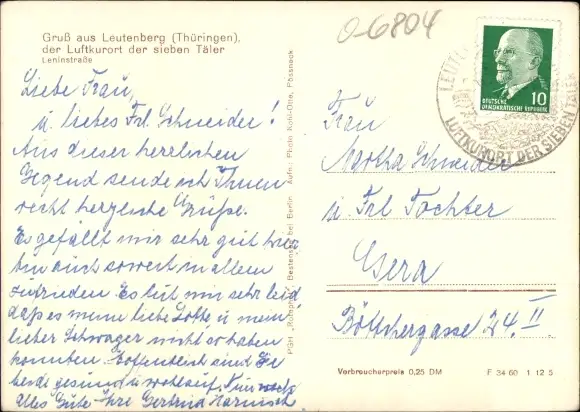 Gruß aus Leutenberg (Thüringen),
der Luftkurort der sieben Täler
Leninstraße
Liebe Frau,
u. liebes Frl. Schneider!
Aus dieser herrlichen
Gegend sende ich Ihnen
recht herzliche Grüße.
Es gefällt mir sehr gut hier
bin auch soweit in allem
zufrieden. Es tut mir sehr leid
daß es meine liebe Lotte u mein
lieber Schwager nicht so haben
konnten. Hoffentlich sind Sie
beide gesund u. wohlauf. Nun noch
alles Gute Ihre Gertrud Harnisch
PGH „Rotophot“ Bestensee bei Berlin Aufn.: Photo Kohl-Otte, Pössneck
O-6804
DEUTSCHE
DEMOKRATISCHE REPUBLIK
10
LUFTKURORT DER SIEBEN TÄLER
Frau
Martha Schneider
u Frl Tochter
Gera
Böttchergasse 24. II
Verbraucherpreis 0,25 DM
F 34 60 1 12 5